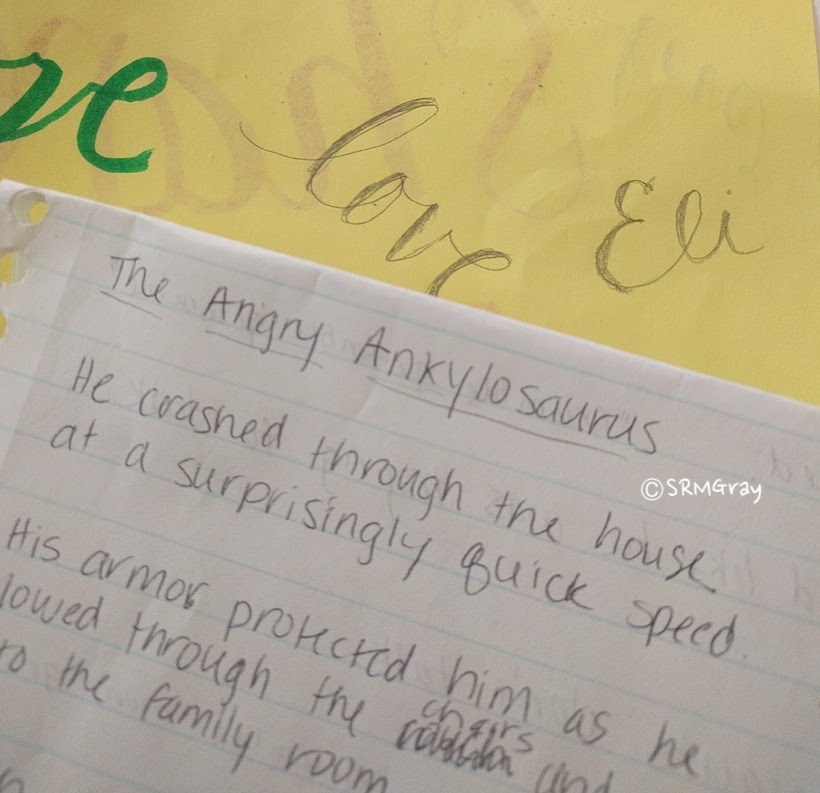 ve
love Eli
The Angry Ankylosaurus
©SRMGray
He crashed through the house
at a surprisingly quick speed.
His armor protected him as he
lowed through the chairs and
to the family room